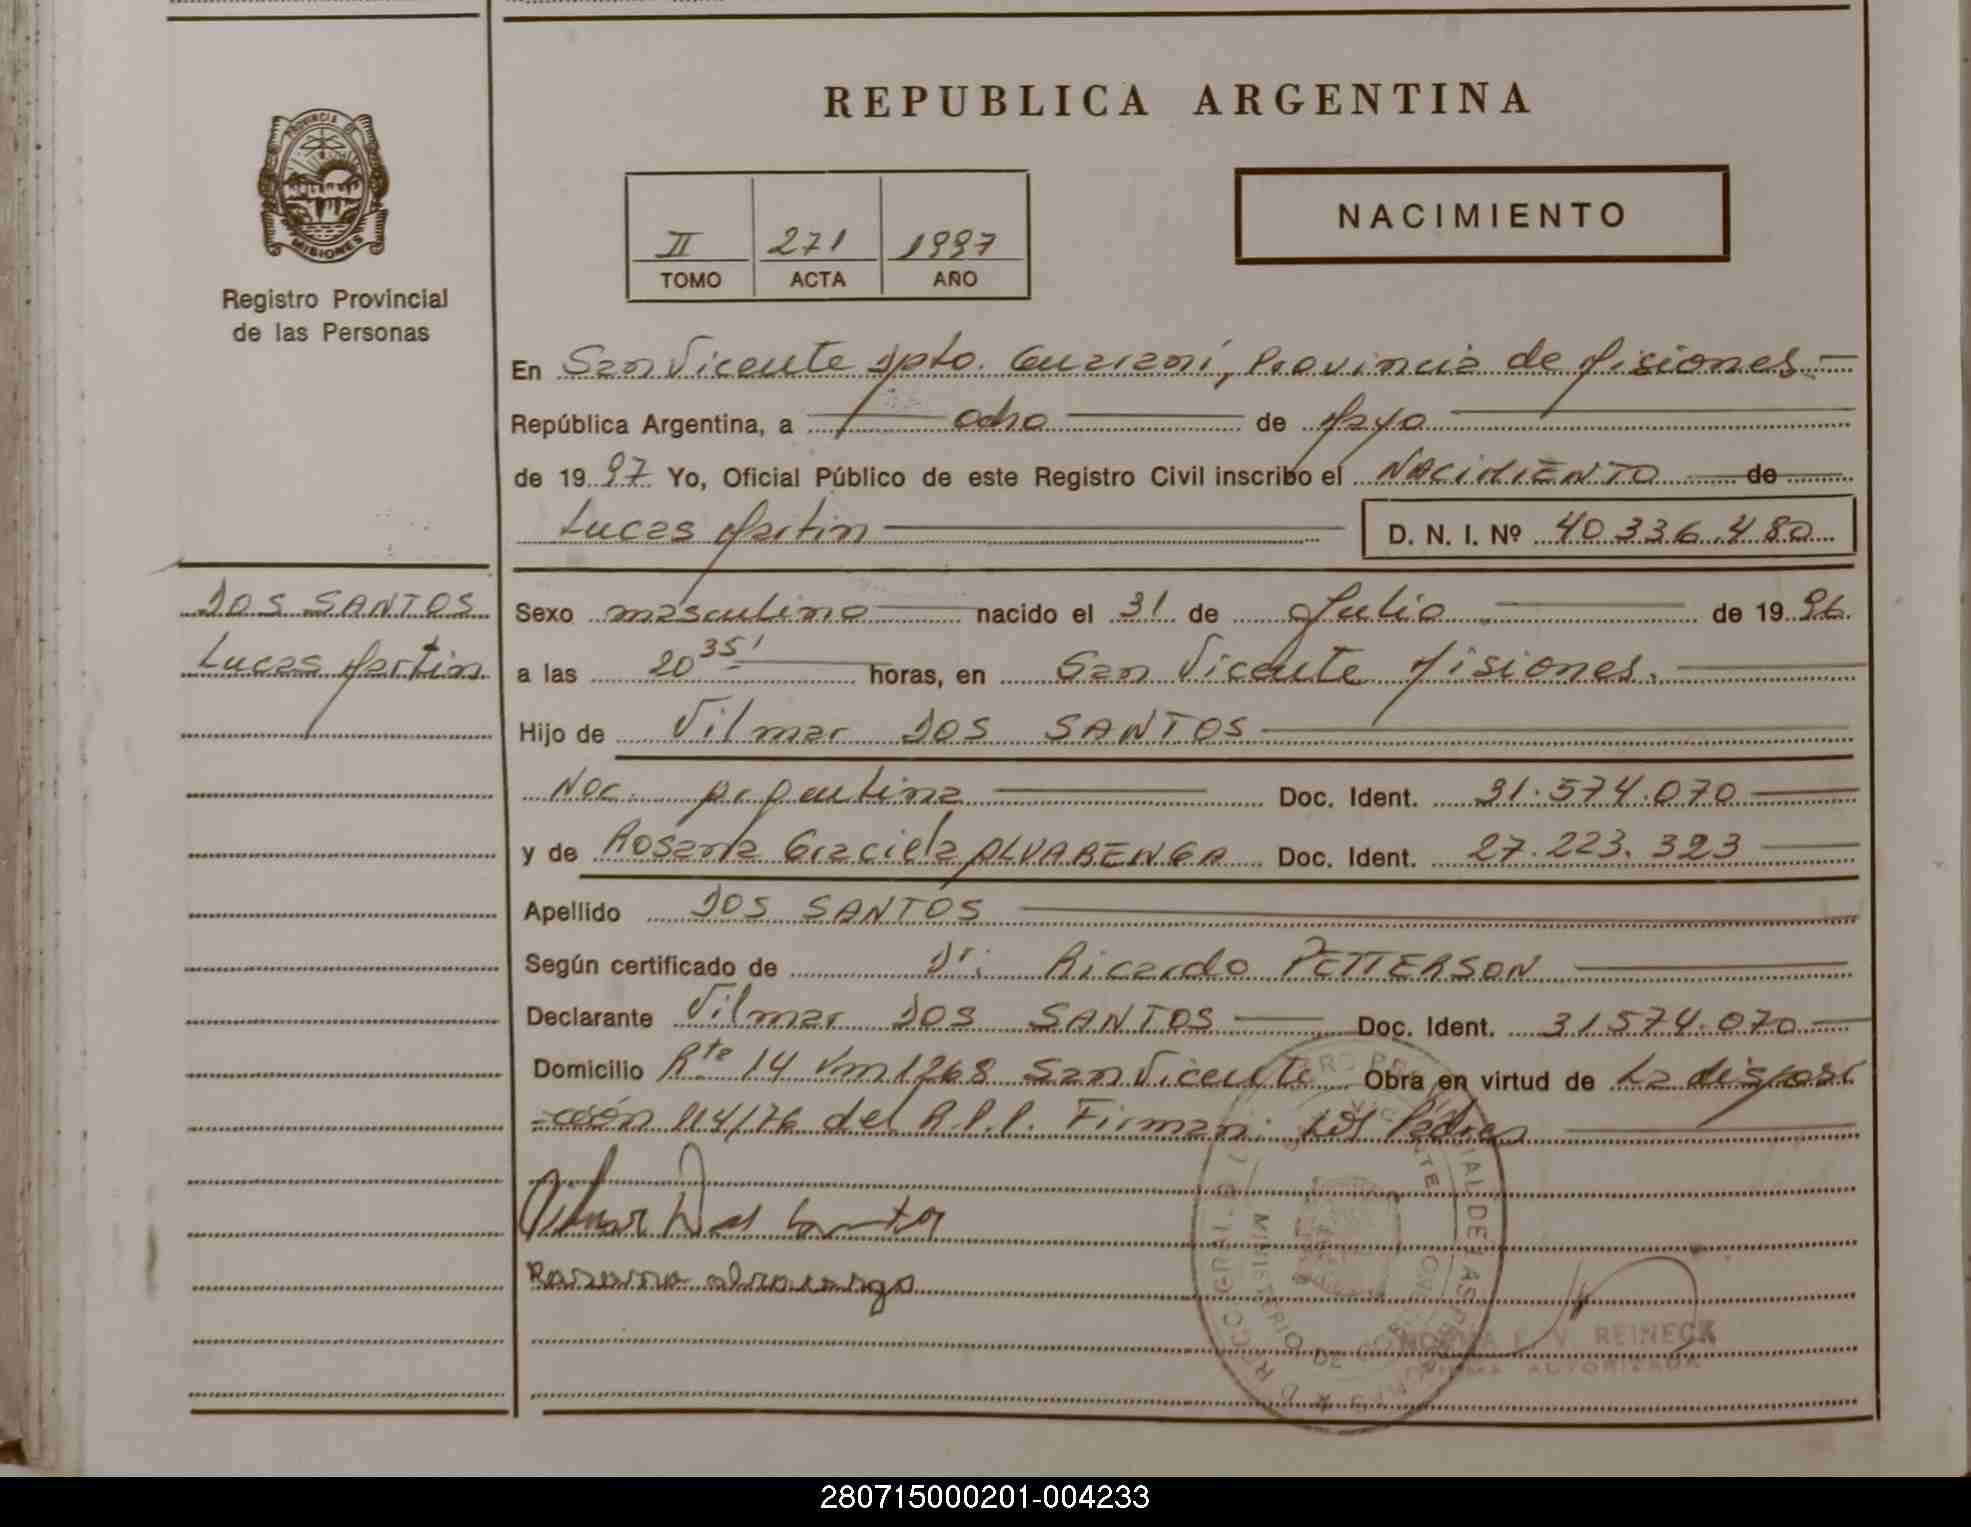 REPUBLICA ARGENTINA
PROVINCIA DE
MISIONES
Registro Provincial
de las Personas
II 271 1997
TOMO ACTA AÑO
NACIMIENTO
En San Vicente Dpto. Guaraní, Provincia de Misiones.
República Argentina, a ocho de Mayo
de 1997 Yo, Oficial Público de este Registro Civil inscribo el NACIMIENTO de
Lucas Martin D. N. I. Nº 40.336.480
DOS SANTOS
Lucas Martin
Sexo masculino nacido el 31 de Julio de 1996.
a las 20 35' horas, en San Vicente Misiones.
Hijo de Vilmar DOS SANTOS
Nac. Argentina Doc. Ident. 31.574.070
y de Rosana Graciela ALVARENGA Doc. Ident. 27.223.323
Apellido DOS SANTOS
Según certificado de Dr: Ricardo PETTERSON
Declarante Vilmar DOS SANTOS Doc. Ident. 31574.070
Domicilio Rta 14 Km 1268 San Vicente Obra en virtud de La disposi
-ción 114/76 del R.P.P. Firman: Los Padres
Vilmar Dos Santos
Rosana alvarenga
MINISTERIO DE
REINECK
AUTORIZADA
280715000201-004233